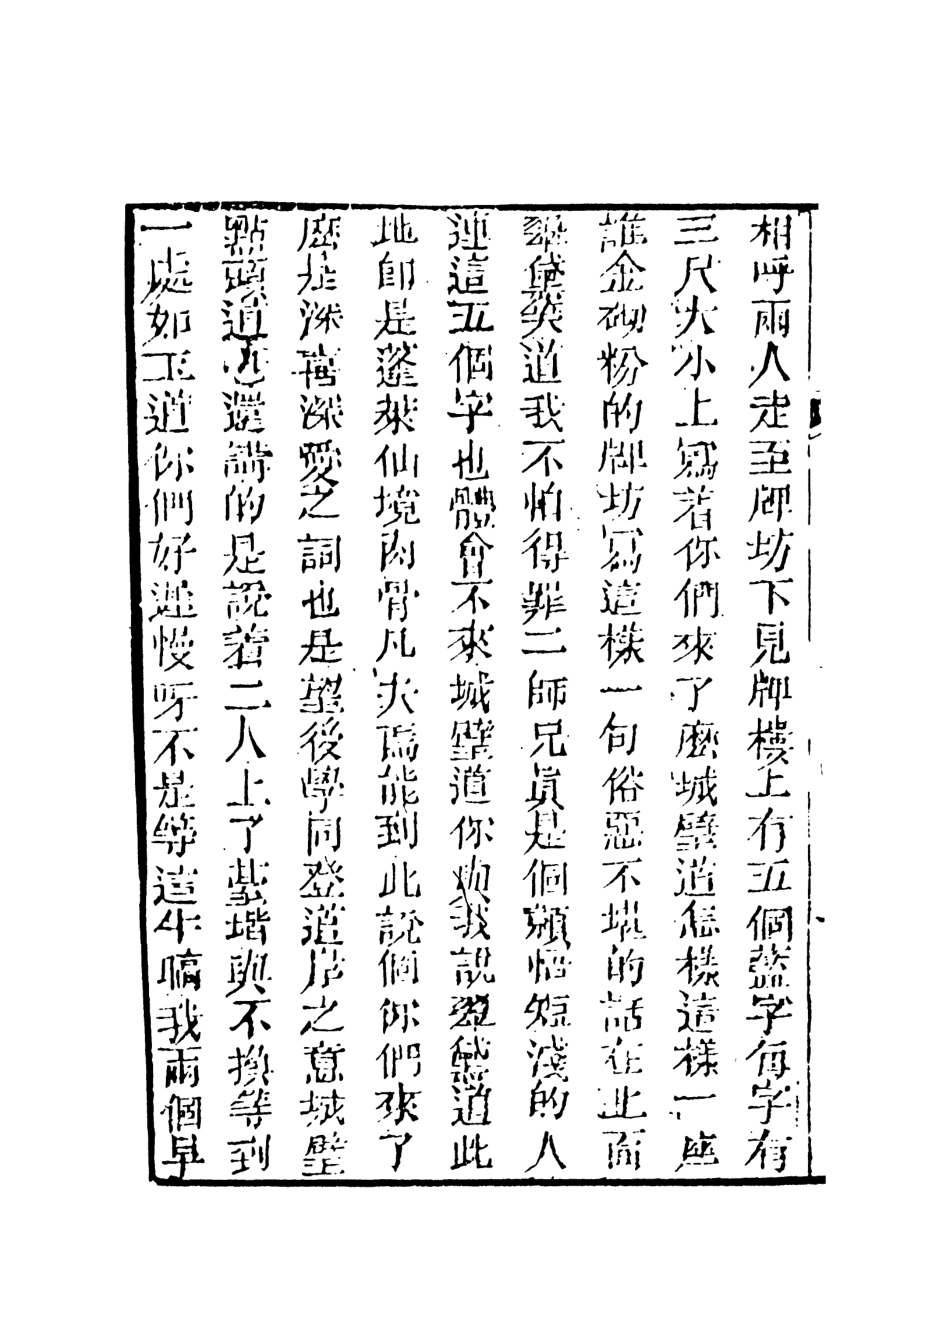 相呼兩人走至牌坊下見牌樓上有五個藍字每字有
三尺大小上寫着你們來了麼城璧道怎樣這樣一座
誰金砌粉的牌坊寫這樣一句俗惡不堪的話在此面
翠黛笑道我不怕得罪二師兄真是個頴悟短淺的人
連這五個字也體會不來城璧道你與我說翠黛道此
地即是蓬萊仙境肉骨凡夫焉能到此說個你們來了
麼是深喜深愛之詞也是望後學同登道岸之意城璧
點頭道還講的是說着二人上了臺堦與不換等到
一處如玉道你們好遲慢呀不是等這半晌我兩個早